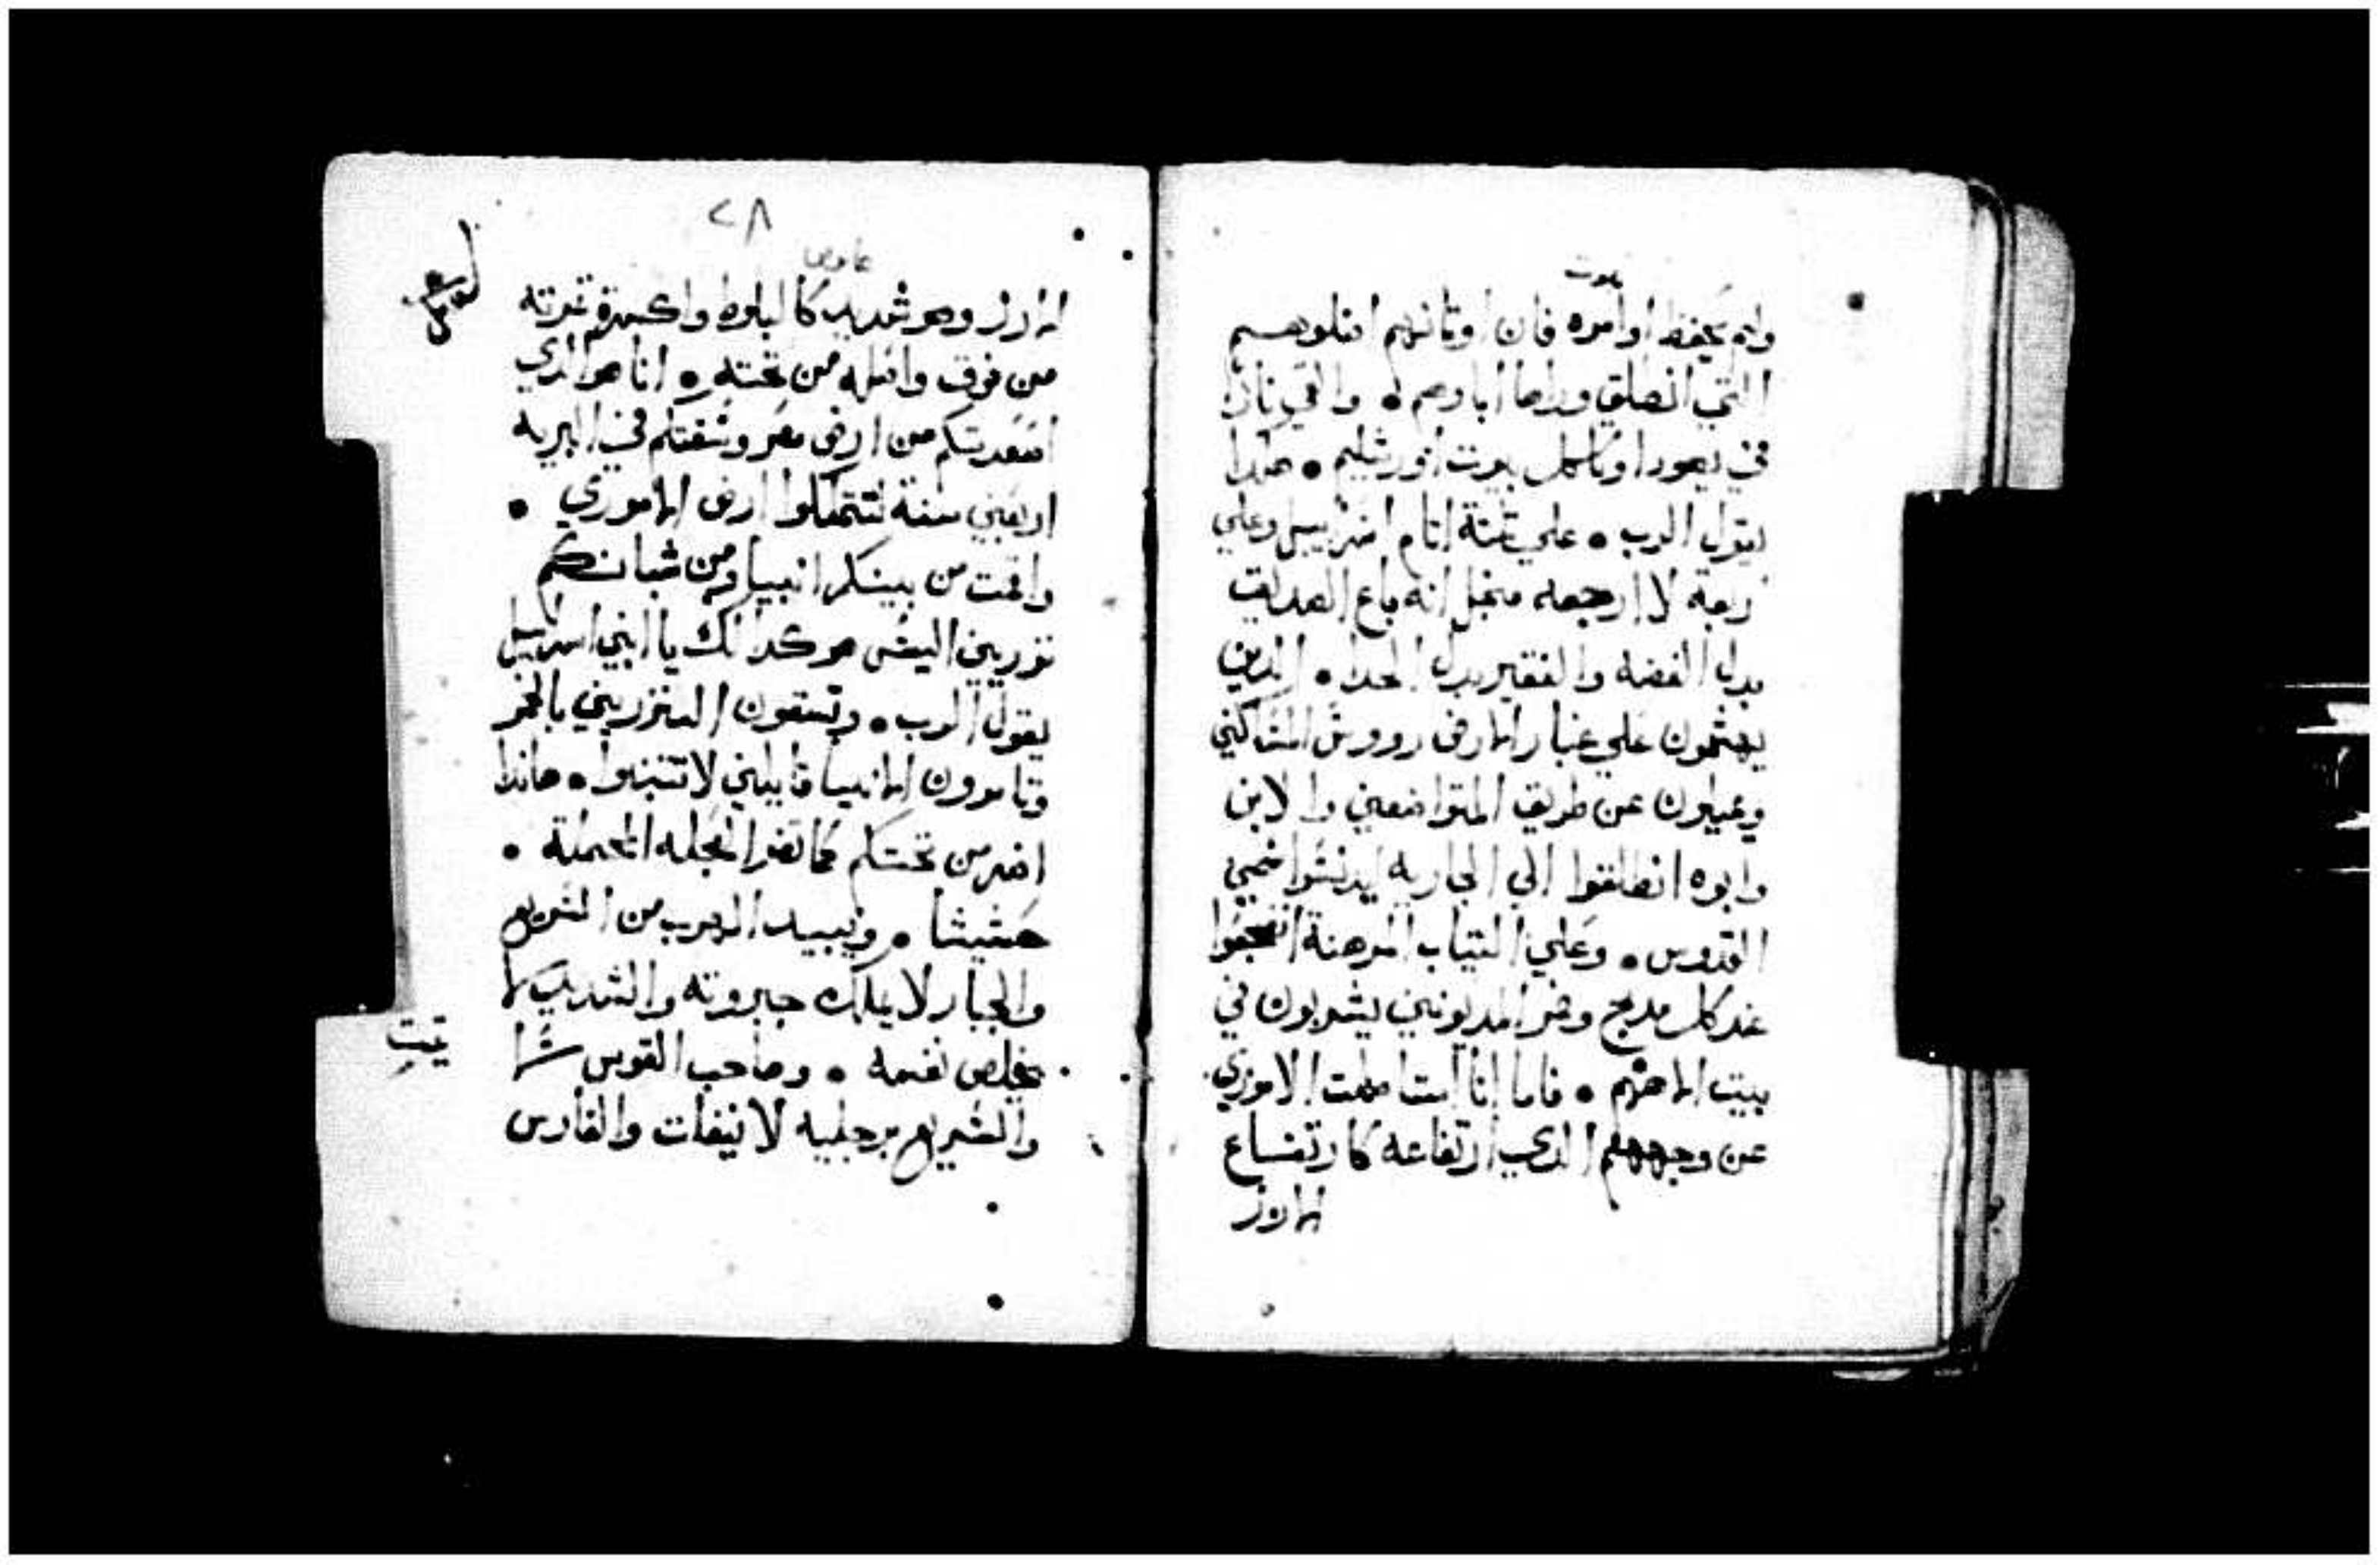 نبوت
ولم يحفظ اوامره فان اوتانهم اضلوهم
التي انطلق وراها اباوهم • والقي نارا
في يهودا وتاكل بيوت اورشليم • هكدا
يقول الرب • علي تلتة اتام اسراييل وعلي
اربعة لا ارجعه منجل انه باع الصديق
بدل الفضه والفقير بدل الحدا • الدين
يهشمون علي غبار الارض رووس المساكين
ويميلون عن طريق المتواضعين والابن
وابوه انطلقوا الي الجاريه ليدنسوا اسمي
القدوس • وعلي التياب المرهنة اتضجعوا
عند كل مدبح وخمر المديونين يشربون في
بيت الاههم • فاما انا استاصلت الاموري
عن وجههم الدي ارتفاعه كارتفاع
الارز
٢٨
عاموص
الارز وهو شديد كالبلوط واكسرة تمرته
من فوق واصله من تحته • انا هو الدي
اصعدتكم من ارض مصر وسقتكم في البريه
اربعين سنة لتتملكوا ارض الاموري •
واقمت من بينكم انبيا ومن شبانكم
نزريين اليس هو كدالك يا بني اسراييل
يقول الرب • وتسقون النزريين بالخمر
وتامرون الانبيا قايلين لا تتنبوا • هاندا
اصر من تحتكم كما تصر العجله المحملة •
حشيشا • ويبيد الهرب من السريع
والجبار لا يملك جبروته والشديد لا
يخلص نفسه • وصاحب القوس لا
والسريع برجليه لا يفلت والفارس
يتبت